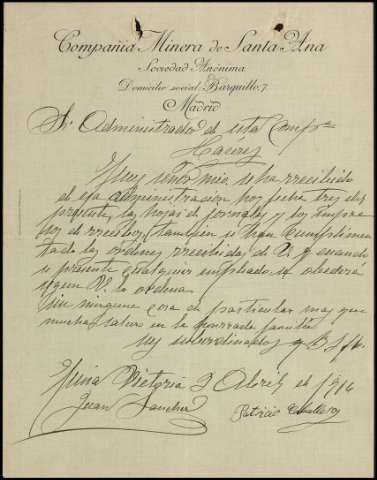 Compañia Minera de Santa Ana
Sociedad Anónima
Domicilio social: Barquillo, 7
Madrid
Sr Administrador de esta Compª
Caceres
Muy Señor mio se ha rrecibido
de esa administracion hoy fecha tres del
presente, las hojas de jornales y los impre
sos de rrecibos, tambien se han cumplimen
tado las ordenes rrecibidas de V. y cuando
se presente cualquier empleado se obedecerá
segun V. lo ordena.
Sin ninguna cosa de particular mas que
mucha salud en la honrrada familia
sus subordinados q B. S. M.
Mina Victoria 3 Abril de 1916
Juan Sanchez
Patricio Caballero